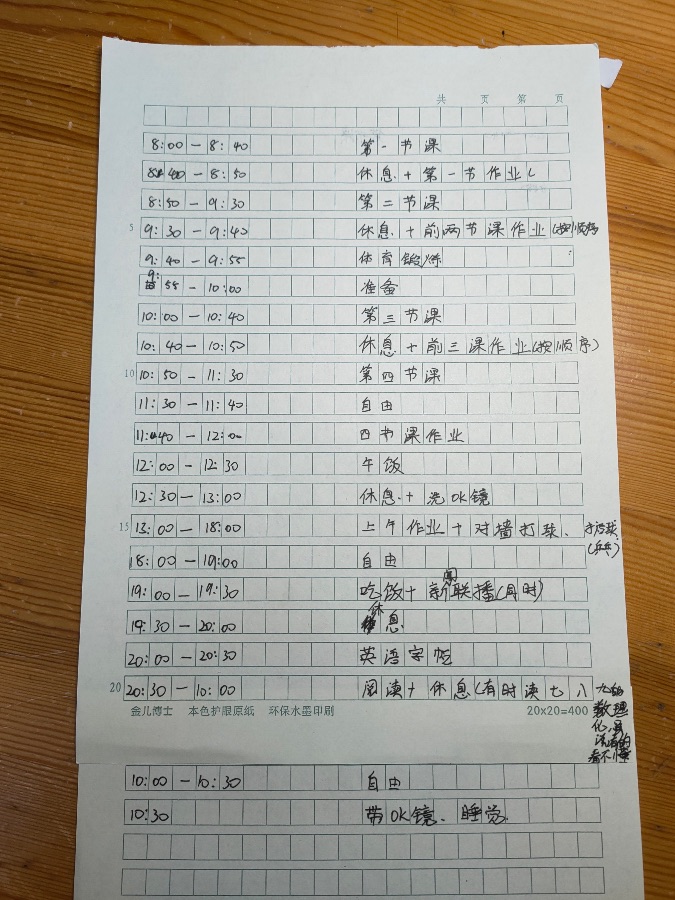 共 页 第 页
8:00 — 8:40 第一节课
8:40 — 8:50 休息+第一节作业
8:50 — 9:30 第二节课
5 9:30 — 9:40 休息+前两节课作业(按顺序
9:40 — 9:55 体育锻炼
9:55 — 10:00 准备
10:00 — 10:40 第三节课
10:40 — 10:50 休息+前三课作业(按顺序)
10 10:50 — 11:30 第四节课
11:30 — 11:40 自由
11:40 — 12:00 四节课作业
12:00 — 12:30 午饭
12:30 — 13:00 休息+洗OK镜
15 13:00 — 18:00 上午作业+对墙打球、
(乒乓)
18:00 — 19:00 自由
19:00 — 19:30 吃饭+新闻联播(有时)
19:30 — 20:00 休息
20:00 — 20:30 英语字帖
20 20:30 — 10:00 阅读+休息(有时读七八
九的
数理
化,
看不懂
金儿博士 本色护眼原纸 环保水墨印刷 20×20=400
10:00 — 10:30 自由
10:30 带OK镜、睡觉.